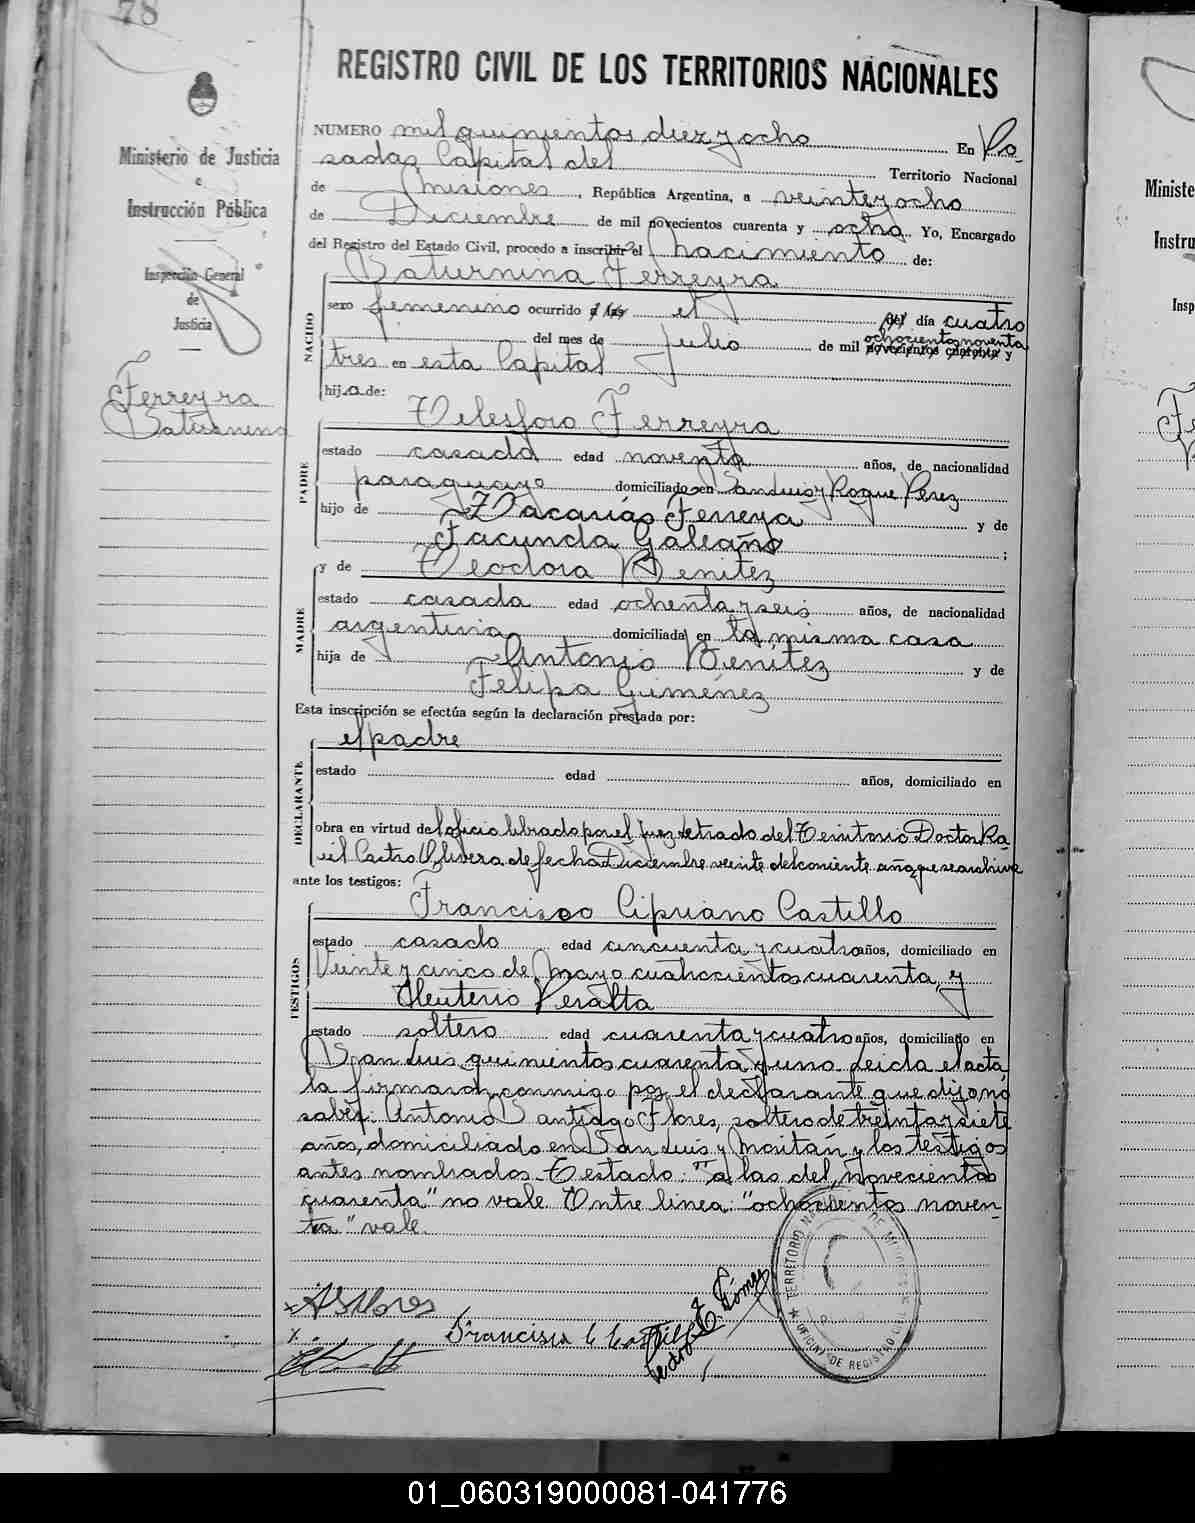 78
REGISTRO CIVIL DE LOS TERRITORIOS NACIONALES
Ministerio de Justicia
e
Instrucción Pública
Inspección General
de
Justicia
Ferreyra
Saturnina
NUMERO mil quinientos diez y ocho En Po-
sadas Capital del Territorio Nacional
de Misiones, República Argentina, a veinte y ocho
de Diciembre de mil novecientos cuarenta y ocho. Yo, Encargado
del Registro del Estado Civil, procedo a inscribir el nacimiento de:
Saturnina Ferreyra
NACIDO
sexo femenino ocurrido a las el del día cuatro
del mes de Julio de mil novecientos cuarenta y
ochocientos noventa
tres en esta Capital
hija de:
PADRE
Telesforo Ferreyra
estado casado edad noventa años, de nacionalidad
paraguayo domiciliado en San Luis y Roque Perez
hijo de Zacarías Ferreya y de
Facunda Galeano;
MADRE
y de Teodora Benitez
estado casada edad ochenta y seis años, de nacionalidad
argentina domiciliada en la misma casa
hija de Antonio Benítez y de
Felipa Giménez
Esta inscripción se efectúa según la declaración prestada por:
DECLARANTE
el padre
estado edad años, domiciliado en
obra en virtud del oficio librado por el Juez Letrado del Territorio Doctor Ra-
úl Castro Olivera de fecha Diciembre veinte del corriente año, que se archiva
ante los testigos:
TESTIGOS
Francisco Cipriano Castillo
estado casado edad cincuenta y cuatro años, domiciliado en
Veinte y cinco de Mayo cuatrocientos cuarenta, y
Eleuterio Peralta
estado soltero edad cuarenta y cuatro años, domiciliado en
San Luis quinientos cuarenta y uno. Leída el acta,
la firmaron conmigo por el declarante que dijo no
saber: Antonio Santiago Flores, soltero de treinta y siete
años, domiciliado en San Luis y Moitán y los testigos
antes nombrados. Testado: "a las del, novecientos
cuarenta" no vale. Entre linea: "ochocientos noven-
ta" vale.
ASFlores
Francisco C Castillo
Gómez
TERRITORIO NACIONAL DE MISIONES
OFICINA DE REGISTRO CIVIL
Ministe
Instru
Insp
01_060319000081-041776